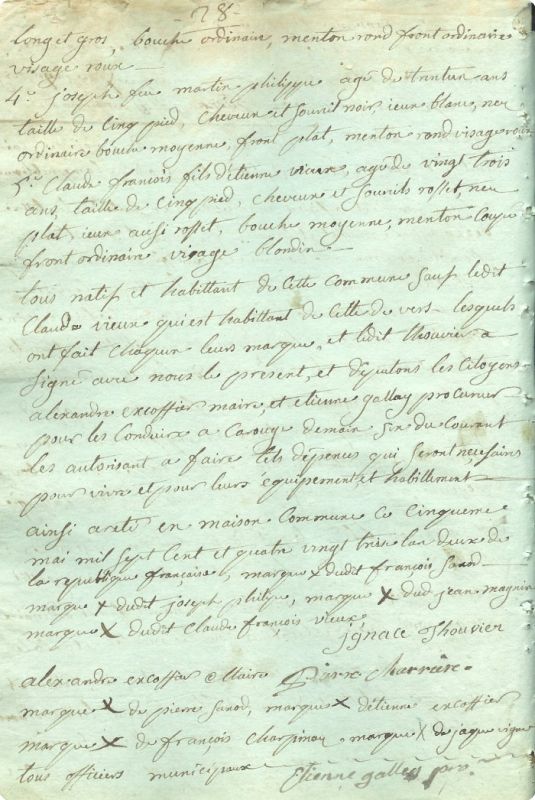 - 28 -
long et gros, bouche ordinaire, menton rond front ordinaire
visage roux —
4.° joseph feu martin philippe agé de trentun ans
taille de cinq pied, cheveux et sourcil noir, ieux blanc, nez
ordinaire bouche moyenne, front plat, menton rond visage roux
5.° Claude françois fils d'étienne vieux, agé de vingt trois
ans, taille de cinq pied, cheveux et sourcils rosset, nez
plat, ieux ausi rosset, bouche moyenne, menton coupé
front ordinaire visage blondin —
tous natif et habittant de cette commune sauf ledit
Claude vieux qui est habittant de celle de vers lesquels
ont fait chaqun leurs marque, et ledit thouvier a
signé avec nous le présent, et députons les Citoyens
alexandre excoffier maire, et etienne gallay procureur
pour les Conduire a Carouge demain six du Courant
les autorisant a faire tels dépences qui seront neçesaires
pour vivre et pour leurs équipement, et habillement —
ainsi areté en maison Commune ce Cinquieme
mai mil sept cent et quatre vingt tres lan deux de
la republique françaises, marque X dudit françois Sanod —
marque X dudit joseph philippe, marque X dud jean magnin
marque X dudit Claude françois vieux,
ignace Thouvier
alexandre excoffier Maire Pierre Charrière
marque X de pierre Sanod, marque X détienne excoffier
marque X de françois Charpinay, marque X de jaque vigne
tous officiers municipaux
Etienne gallay pro.r